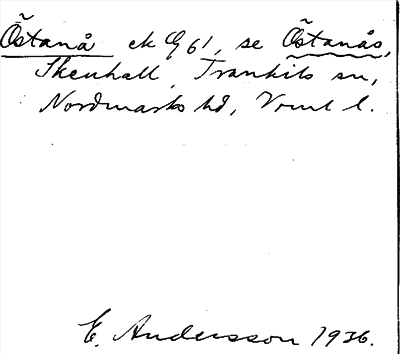 Östanå ek G 61, se Östanås,
Skenhall, Trankils sn,
Nordmarks hd, Vrml l.
E. Andersson 1936.